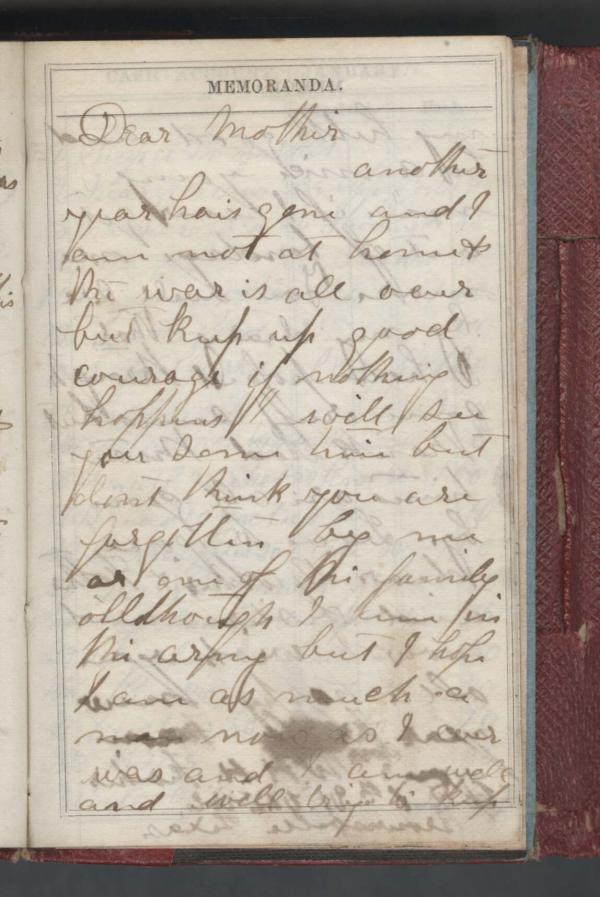 MEMORANDA.
Dear Mother
another
year hais gone and I
am not at home &
the war is all over
but keep up good
courage if nothing
happens I will see
you some time but
dont think you are
forgotten by me
or one of the family
allthough I am in
the army but I hope
I am as much a
man now as I ever
was and I am well
and will try to keep